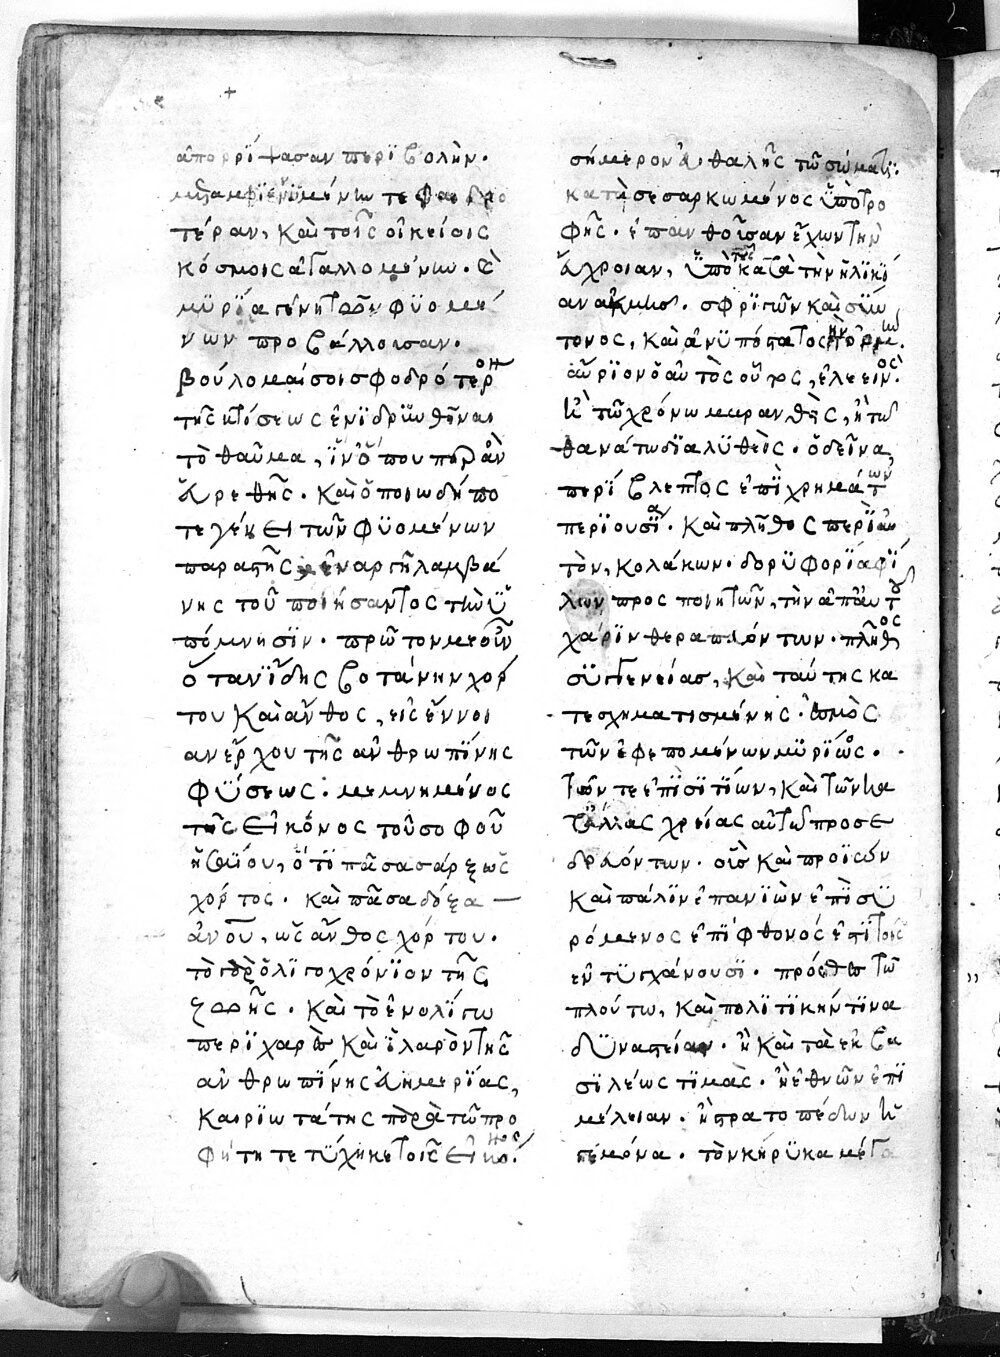 ἀπορρίψασαν περιβολὴν·
μεταμφιεννϋμένην τε φαιδρο
τέραν, καὶ τοῖς οἰκείοις
κόσμοις ἀγαλλομένην· καὶ
μϋρία γένη τῶν φϋομέ
νων προβάλλουσαν·
βούλομαί σοι σφοδρότερον
τῆς κτίσεως ἐνϊδρϋνθῆναι
τὸ θαῦμα, ἵν' ὅπου περ ἂν
εὑρεθῆς· καὶ ὁποίω δή πο
τε γένει τῶν φϋομένων
παραστῆς, ἐναργῆ λαμβά
νης τοῦ ποιήσαντος τὴν ὑ
πόμνησϊν· πρῶτον μὲν οὖν
ὅταν ἴδης βοτάνην χόρ
του καὶ ἄνθος, εἰς ἔννοι
αν ἔρχου τῆς ἀνθρωπϊνης
φύσεως· μεμνημένος
τῆς εἰκόνος τοῦ σοφοῦ
ἡσαΐου, ὅτϊ πᾶσα σάρξ ὡς
χόρτος· καὶ πᾶσα δόξα
ἀνου, ὡς ἄνθος χόρτου·
τὸ γὰρ ὀλϊγοχρόνϊον τῆς
ζωῆς· καὶ τὸ ἐν ὀλίγω
περϊχαρὲς καὶ ἱλαρὸν τῆς
ἀνθρωπϊνης εὐημερίας,
καιρϊωτάτης παρὰ τῶ προ
φήτη τετϋχηκε τοῖς εἰκόνος·
σήμερον εὐθαλὴς τῶ σώματι·
κατὰ σεσαρκωμένος ὑπὸ τρο
φῆς· ἐπανθοῦσαν ἔχων τὴν
εὔχροιαν, ὑπὸ τῆς κατὰ τὴν ἡλϊκί
αν ἀκμῆς· σφριγῶν καὶ σϋν
τονος, καὶ ἀνϋπόστατος τὴν ὁρμήν·
αὔρϊον ὁ αὐτὸς οὗτος, ἐλεεινός·
ἢ τῶ χρόνω μαρανθεὶς, ἢ τῶ
θανάτω διαλϋθεὶς· ὁ δεῖνα
περίβλεπτος ἐπὶ χρημάτων
περιουσία· καὶ πλῆθος περὶ αὐ
τὸν, κολάκων· δορϋφορία φί
λων προσποιητῶν, τὴν ἀπ' αὐτοῦ
χάρϊν θεραπευόντων· πλῆθος
σϋγγενείας, καὶ ταύτης κα
τεσχηματισμένης· ἑσμὸς
τῶν ἐφεπομένων μϋρίος·
τῶν τε ἐπὶ σϊτίων, καὶ τῶν κα
τ' ἄλλας χρείας αὐτῶ προσε
δρευόντων· οὓς καὶ προϊὼν
καὶ πάλϊν ἐπανϊὼν ἐπὶ σϋ
ρόμενος ἐπίφθονός ἐστι τοῖς
ἐντϋγχάνουσϊ· πρόσθες τῶ
πλούτω, καὶ πολϊτϊκήν τϊνα
δϋναστείαν· ἢ καὶ τὰ ἐκ βα
σϊλέως τϊμὰς· ἢ ἐθνῶν ἐπϊ
μέλειαν· ἢ στρατοπέδων ἡ
γεμόνα· τὸν κήρϋκα μέγα